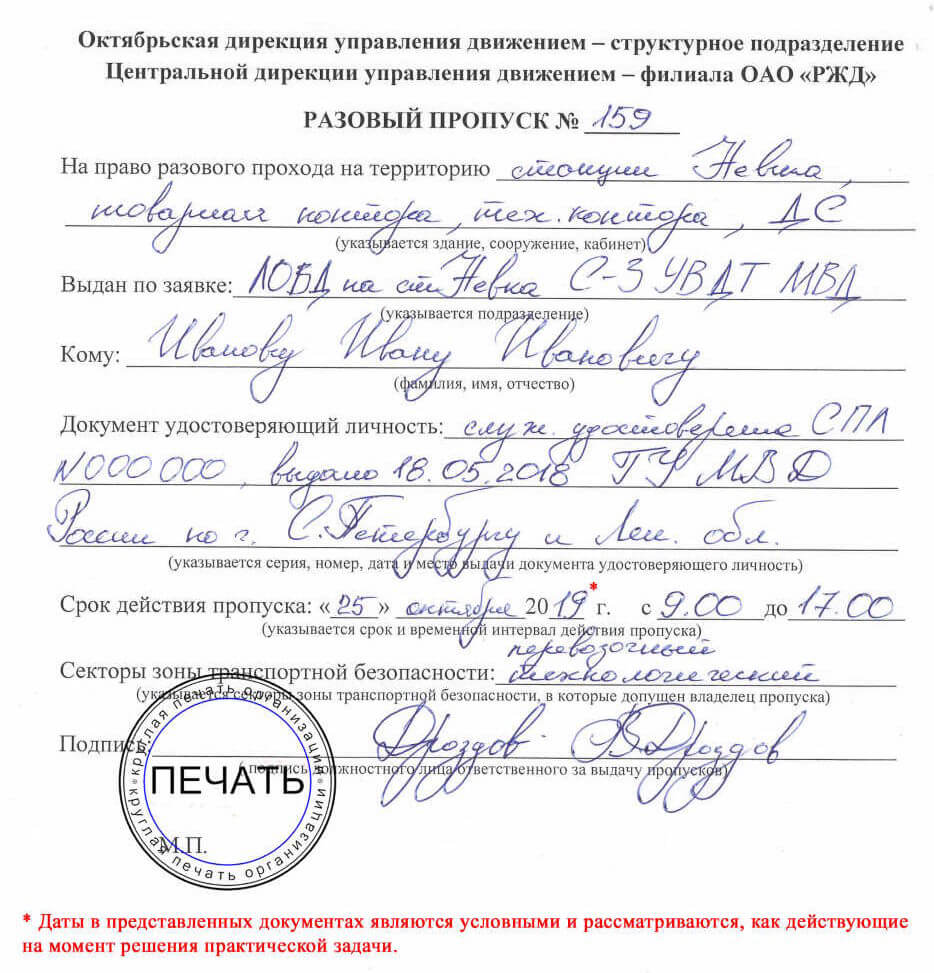 Октябрьская дирекция управления движением – структурное подразделение
Центральной дирекции управления движением – филиала ОАО «РЖД»
РАЗОВЫЙ ПРОПУСК № 159
На право разового прохода на территорию станции Невка,
товарная контора, тех. контора, ДС
(указывается здание, сооружение, кабинет)
Выдан по заявке: ЛОВД на ст Невка С-З УВДТ МВД
(указывается подразделение)
Кому: Иванову Ивану Ивановичу
(фамилия, имя, отчество)
Документ удостоверяющий личность: служ. СПЛ
N 000 000, выдано 18.05.2018 ГУ МВД
России по г. С.Петербургу и Лен. обл.
(указывается серия, номер, дата и место выдачи документа удостоверяющего личность)
Срок действия пропуска: «25» октября 2019* г. с 9.00 до 17.00
(указывается срок и временной интервал действия пропуска)
перевозочный
Секторы зоны транспортной безопасности: технологический
(указывается секторы зоны транспортной безопасности, в которые допущен владелец пропуска)
Подпись: Дроздов ВДроздов
( подпись должностного лица ответственного за выдачу пропусков)
круглая печать организации * круглая печать организации *
ПЕЧАТЬ
М.П.
* Даты в представленных документах являются условными и рассматриваются, как действующие
на момент решения практической задачи.